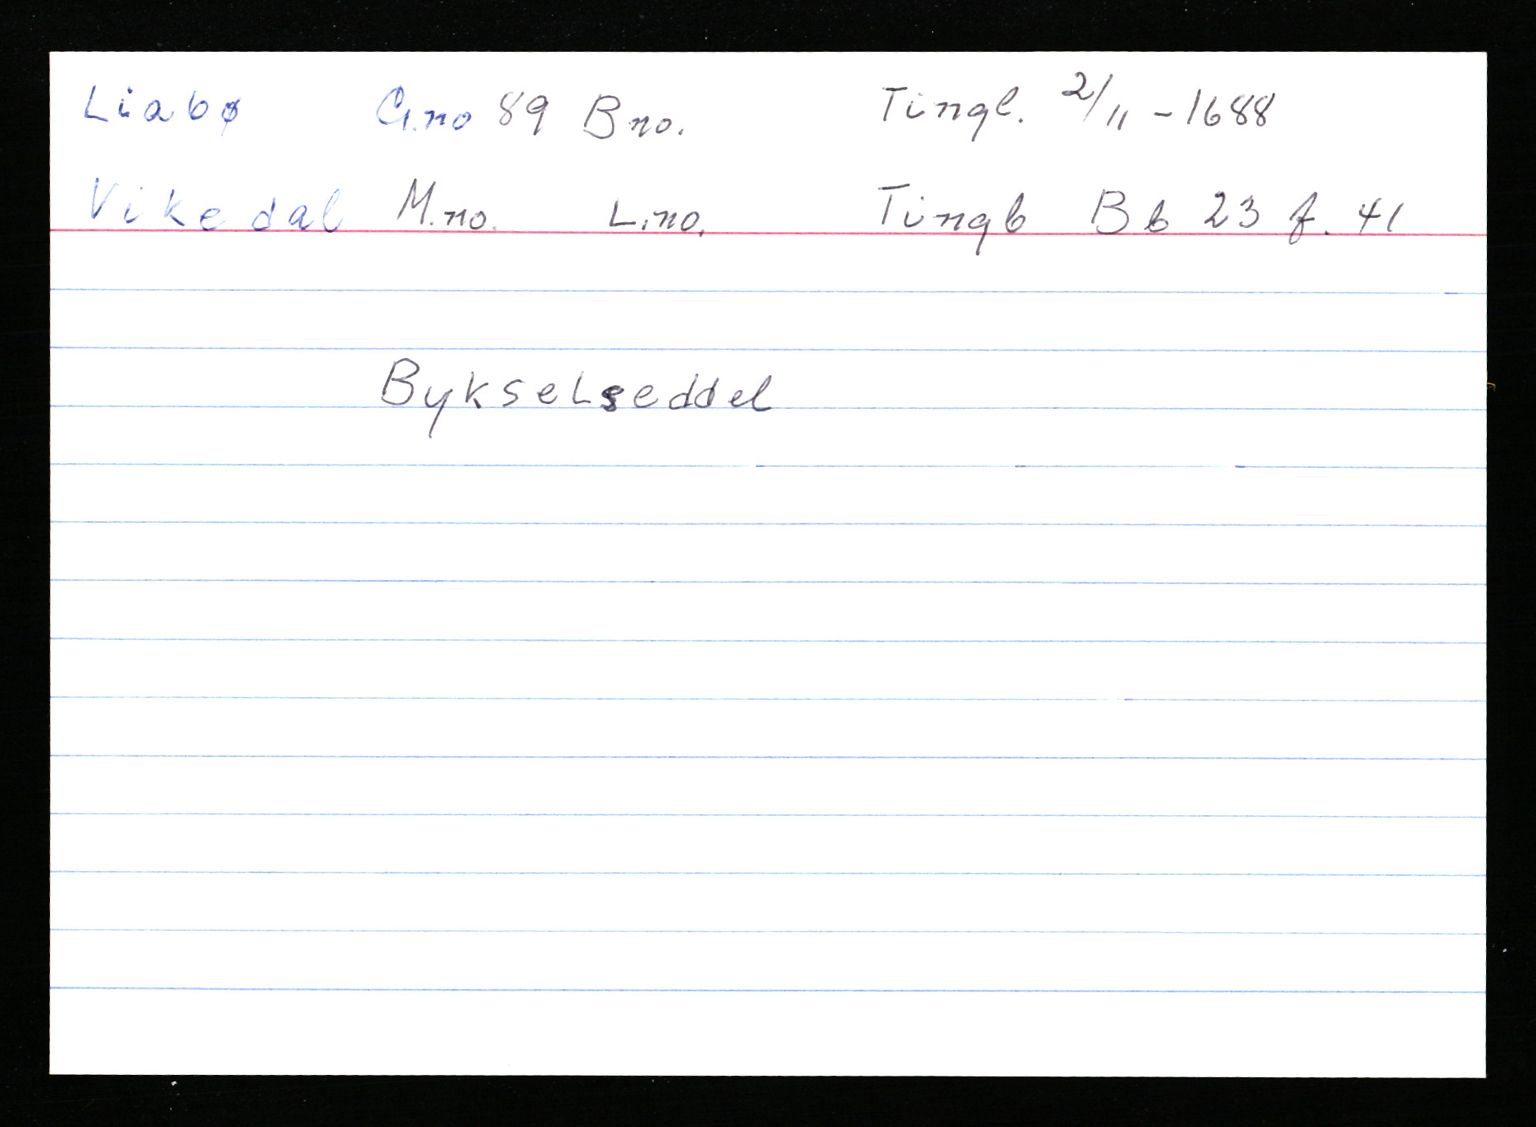 Liabø G.no 89 B no. Tingl. 2/11 - 1688
Vikedal M.no. L.no. Tingb Bb 23 f. 41
Bykselseddel